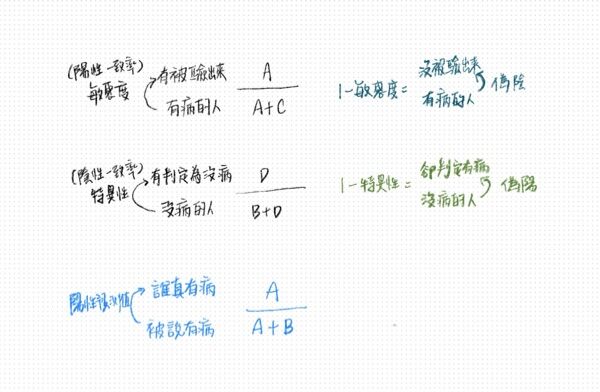 (陽性一致率)
敏感度
有被驗出來
有病的人
A
A+C
1-敏感度=
沒被驗出來
有病的人
偽陰
(陰性一致率)
特異性
有判定為沒病
沒病的人
D
B+D
1-特異性=
卻判定有病
沒病的人
偽陽
陽性預測值
誰真有病
被說有病
A
A+B